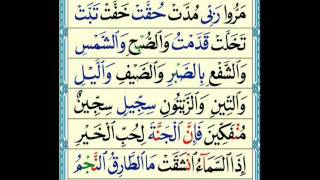 مَرُّوا رَبِّي مُدَّتْ حُقَّتْ خَفَّتْ تَبَّتْ
تَخَلَّتْ قَدَّمْتُ وَالصُّبْحِ وَالشَّمْسِ
وَالشَّفْعِ بِالصَّبْرِ وَالصَّيْفِ وَالَّيْلِ
وَالتِّينِ وَالزَّيْتُونِ سِجِّيلٍ سِجِّينٌ
مُنْفَكِّينَ فَإِنَّ الْجَنَّةَ لِحُبِّ الْخَيْرِ
إِذَا السَّمَآءُ انْشَقَّتْ مَا الطَّارِقُ النَّجْمُ